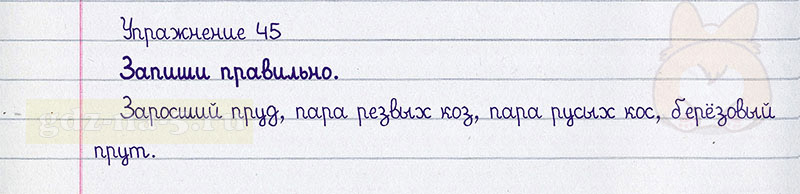 Упражнение 45
Запиши правильно.
Заросший пруд, пара резвых коз, пара русых кос, берёзовый
прут.
gdz-na-5.ru